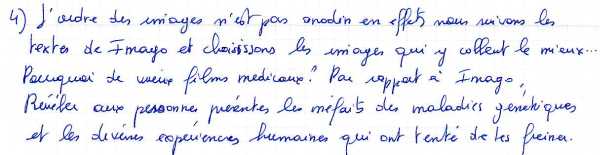 4) L'ordre des images n'est pas anodin en effet, nous suivons les
textes de Imago et choisissons les images qui y collent le mieux...
Pourquoi de vieux films médicaux? Par rapport à Imago,
Révéler aux personnes présentes les méfaits des maladies génétiques
et les diverses expériences humaines qui ont tenté de les freiner.